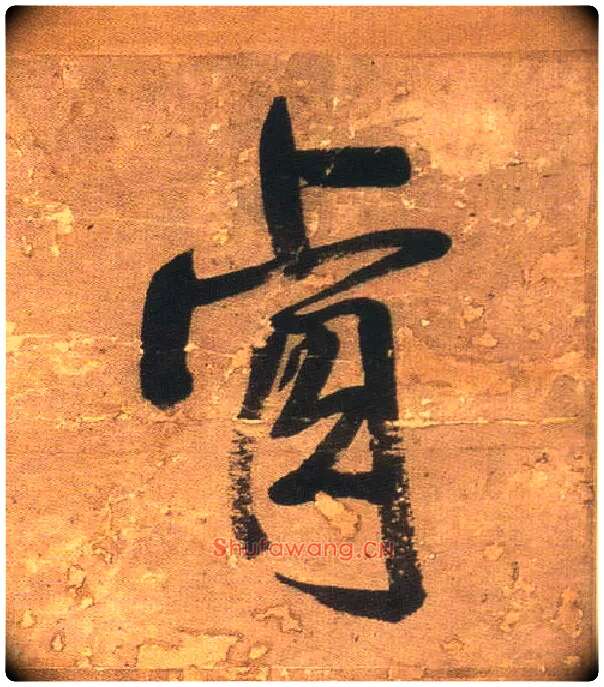 肯
Shufawang.CN